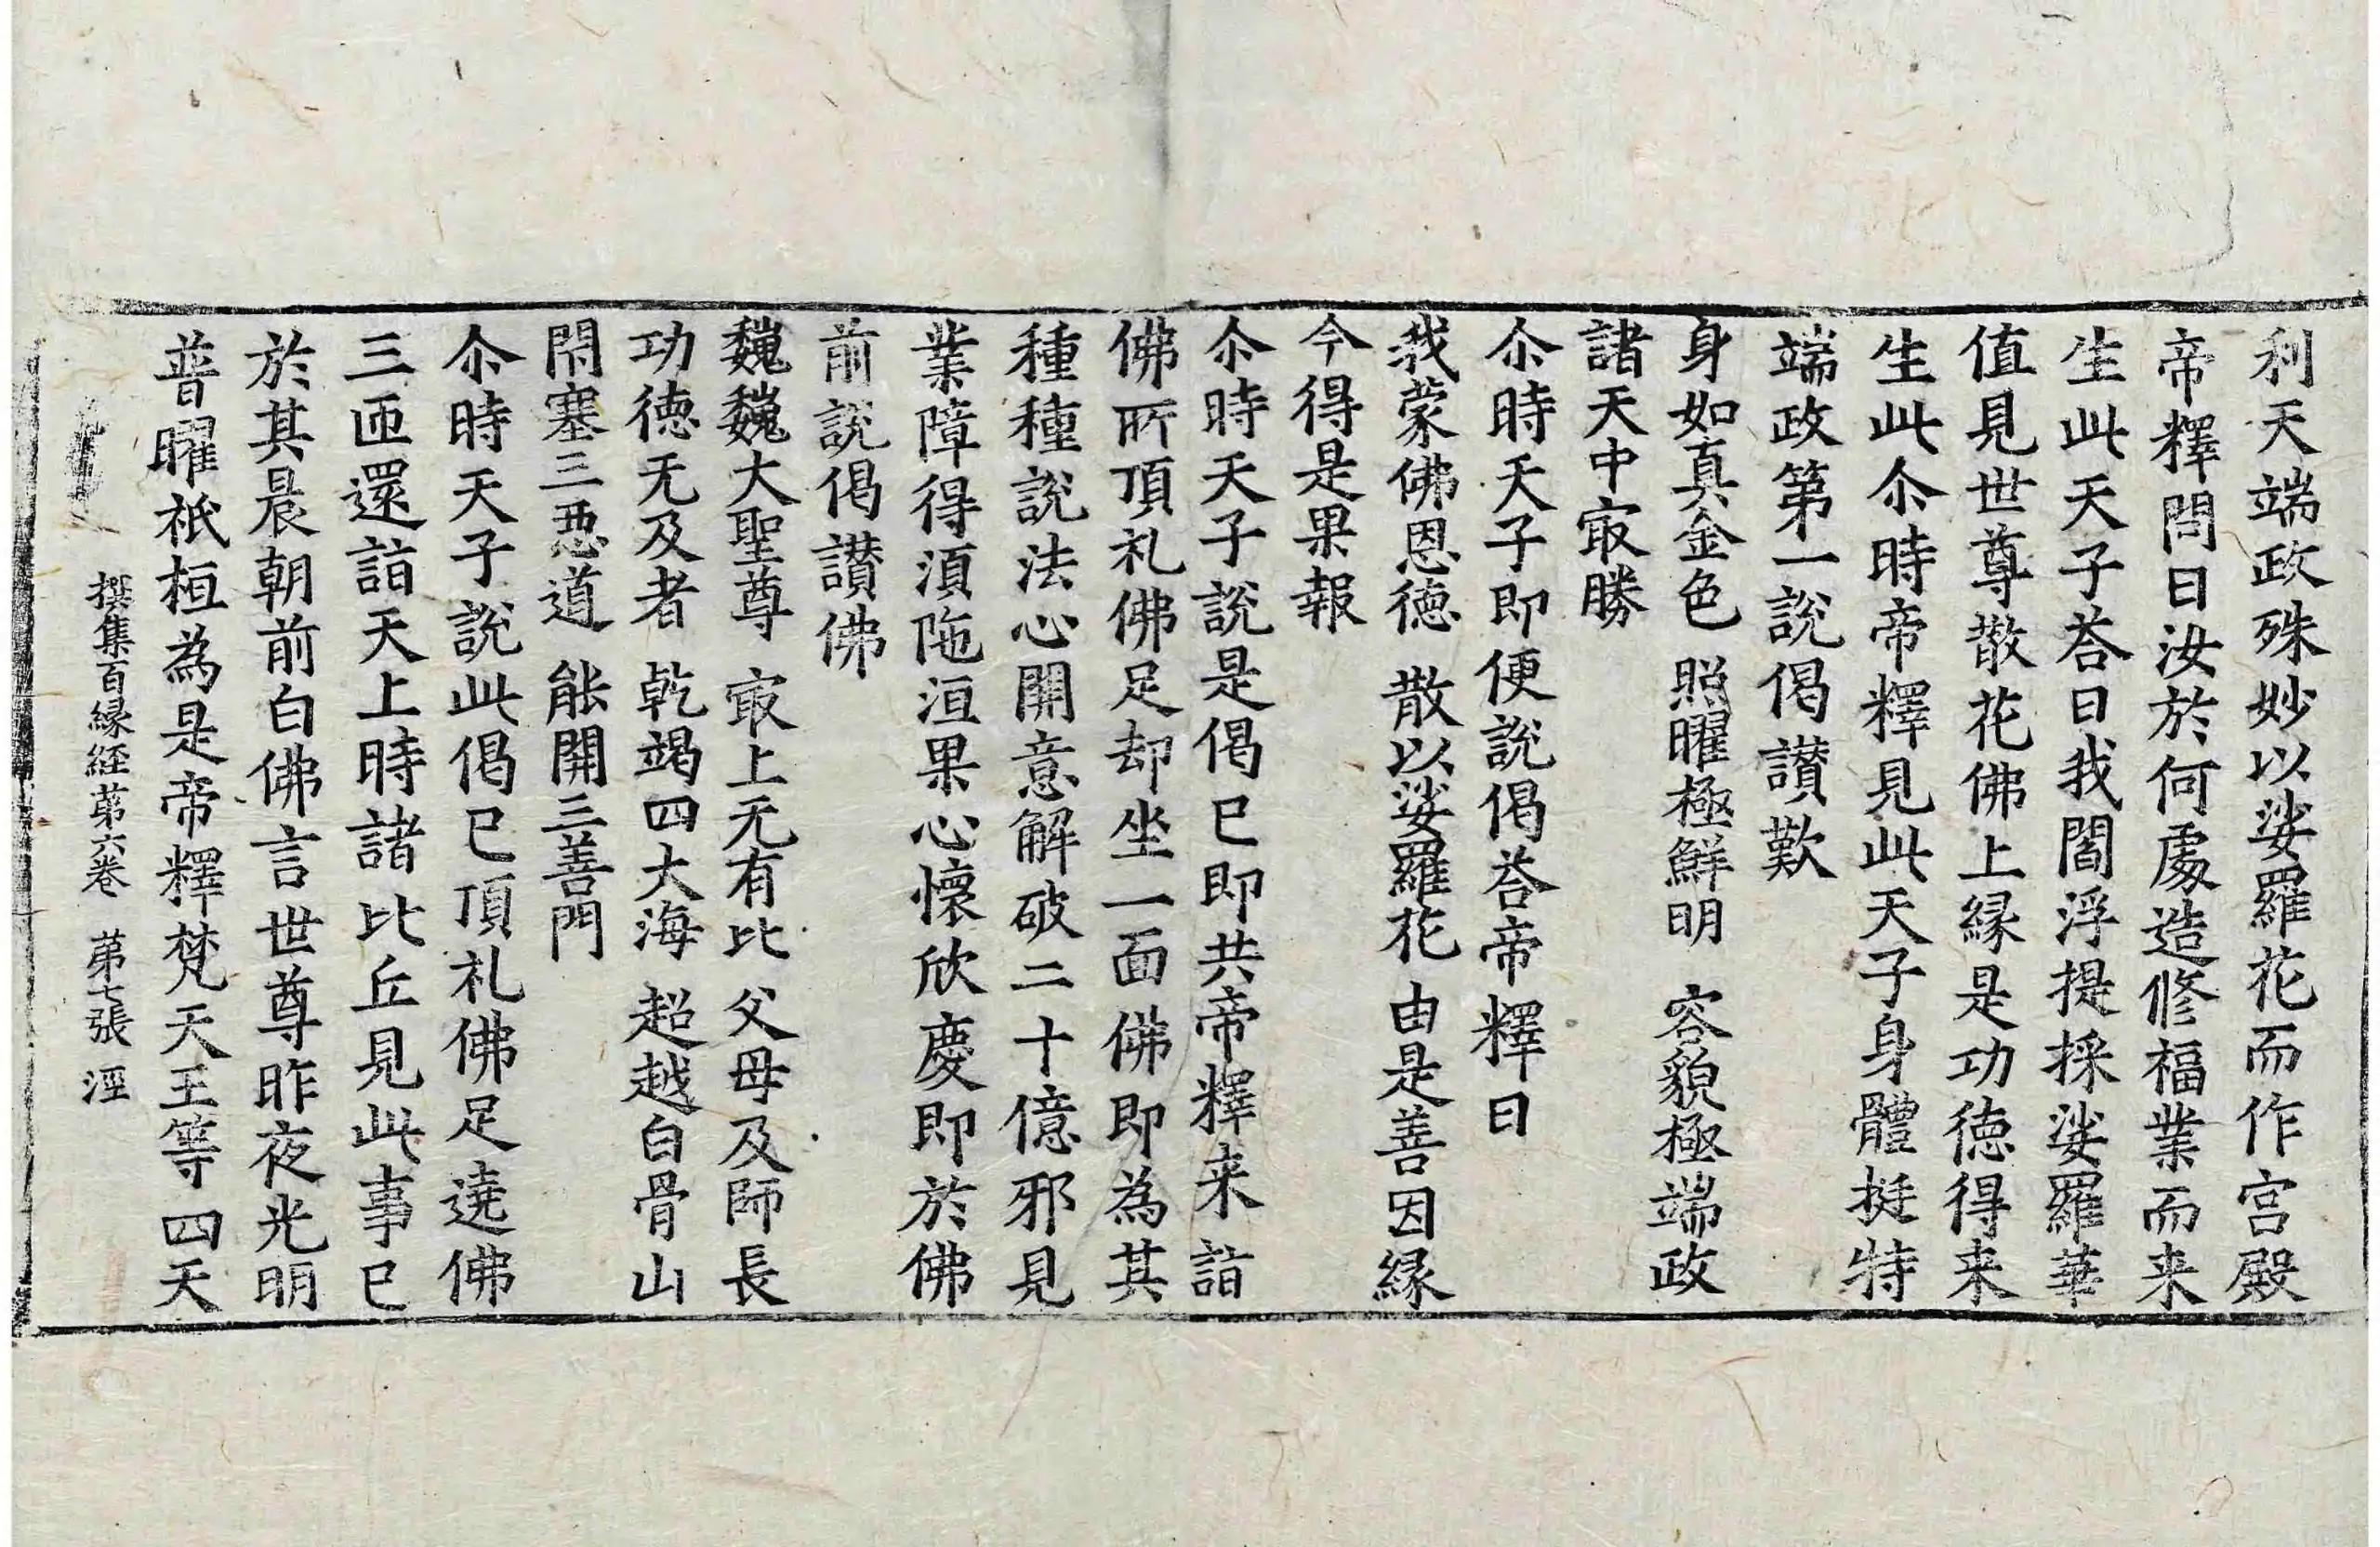 利天端政殊妙以娑羅花而作宫殿
帝釋問曰汝於何處造修福業而来
生此天子荅曰我閻浮提採娑羅華
值見世尊散花佛上縁是功徳得来
生此尒時帝釋見此天子身體挺特
端政第一說偈讃歎
身如真金色 照曜極鮮明 容貌極端政
諸天中㝡勝
尒時天子即便說偈荅帝釋曰
我蒙佛恩徳 散以娑羅花 由是善因縁
今得是果報
尒時天子說是偈已即共帝釋来詣
佛所頂礼佛足却坐一面佛即為其
種種說法心開意解破二十億邪見
業障得湏陁洹果心懷欣慶即於佛
前說偈讃佛
巍巍大聖尊 㝡上无有比 父母及師長
功徳无及者 乾竭四大海 超越白骨山
閇塞三惡道 能開三善門
尒時天子說此偈已頂礼佛足遶佛
三匝還詣天上時諸比丘見此事已
於其晨朝前白佛言世尊昨夜光明
普曜祇桓為是帝釋梵天王等四天
撰集百縁経第六卷 第七張 淫